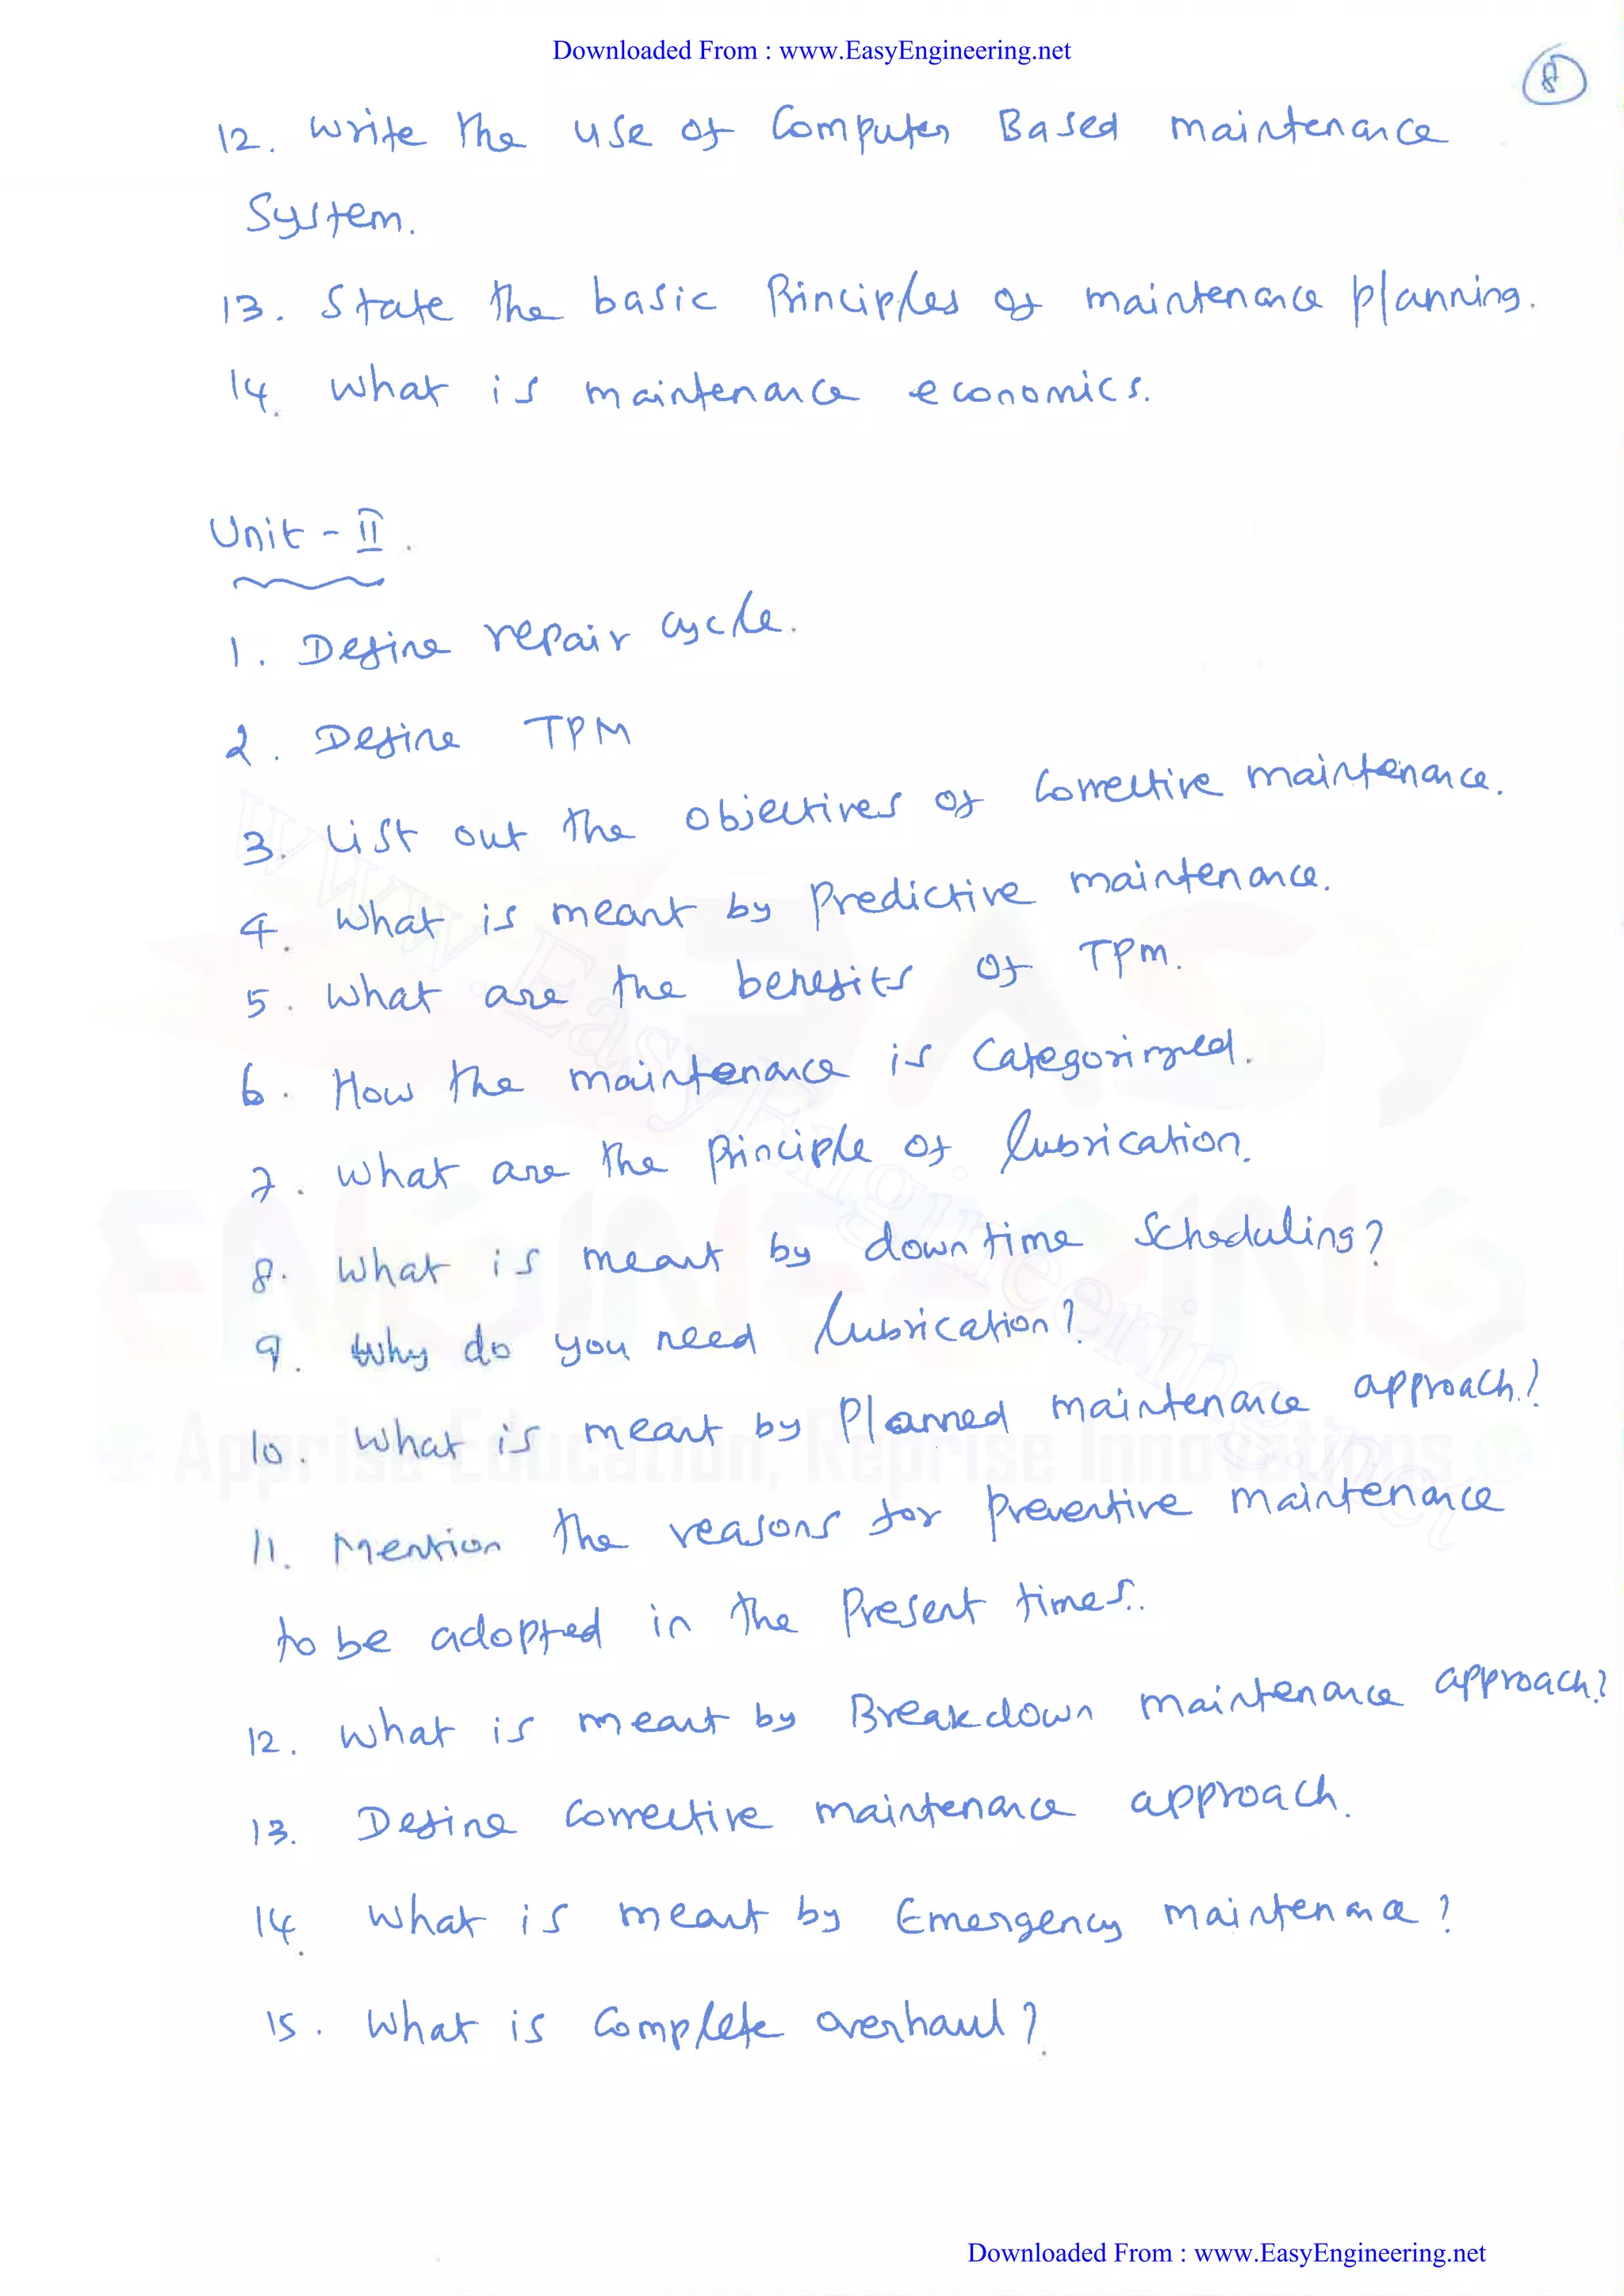 Downloaded From : www.EasyEngineering.net
8
12. Write the use of Computer Based maintenance
System.
13. State the basic Principles of maintenance planning.
14. What is maintenance economics.
Unit - II.
1. Define repair cycle.
2. Define TPM
3. List out the objectives of Corrective maintenance.
4. What is meant by Predictive maintenance.
5. What are the benefits of TPM.
6. How the maintenance is Categorized.
7. What are the Principle of lubrication.
8. What is meant by down time Scheduling?
9. Why do you need lubrication?
10. What is meant by Planned maintenance approach?
11. Mention the reasons for preventive maintenance
to be adopted in the Present times.
12. What is meant by Breakdown maintenance approach?
13. Define Corrective maintenance approach.
14. What is meant by Emergency maintenance?
15. What is Complete overhaul?
www.EasyEngineering.net
EASY
ENGINEERING
Apprise Education, Reprise Innovations
Downloaded From : www.EasyEngineering.net